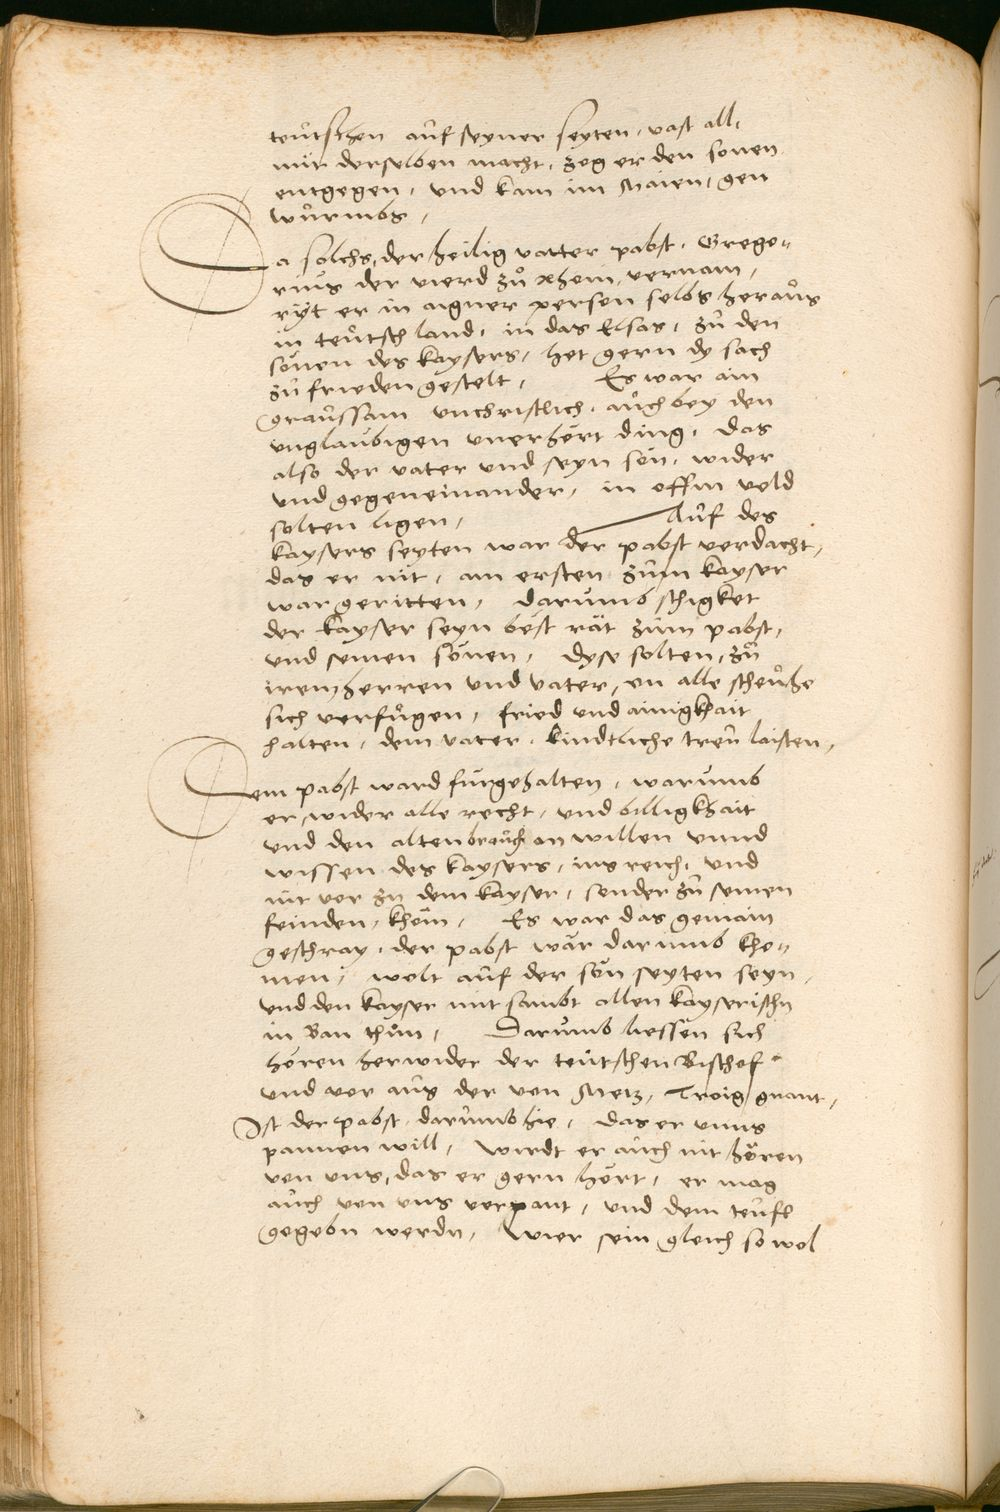 teůtschen aůf seyner seyten, vast all,
mit derselben macht, zog er den sonen
entgegen, vnd kam im Maien, gen
wůrmbs,
Da solchs, der heilig vatter pabst, Grego„
rius der vierd zů Rhom, vernam,
ryt er in aigner person selbs heraůs
in teůtsch land, in das Elsas, zů den
sönen des kaysers, het gern dy sach
zů frieden gestelt, Es war ain
graůssam vnchristlich, aůch bey den
vnglaubigen vnerhört ding, das
also der vater vnd seyn sön, wider
vnd gegeneinander, in offm veld
solten ligen, Aůf des
kaysers seyten war der pabst verdacht,
das er nit, am ersten zům kayser
war geritten, darumb schigket
der kayser seyn best rät zům pabst,
vnd seinen sönen, dyse solten, zů
irem herren vnd vater, on alle scheůhe
sich verfůgen, fried vnd ainigkhait
halten, dem vater, kindtliche treů laisten,
Dem pabst ward fürgehalten, warumb
er, wider alle recht, vnd billigkhait
vnd den alten braůch on willen vnnd
wissen des kaysers, ins reich, vnd
nit vor zu dem kayser, sonder zů seinen
feinden, khöm, Es war das gemain
geschray, der pabst wär darumb kho„
men, wolt aůf der sön seyten seyn,
vnd den kayser mit sambt allen kayserischn
in Ban thůn, Darůmb liessen sich
hören herwider der teütschen Bischof
vnd vor aůs der von Metz, Trogo gnant,
Ist der pabst darumb hie, das er vnns
pannen will, wirdt er aůch nit hören
von vns, das er gern hört, er mag
aůch von vns verpant, vnd dem teůfl
gegebn werdn, Wier sein gleich so wol